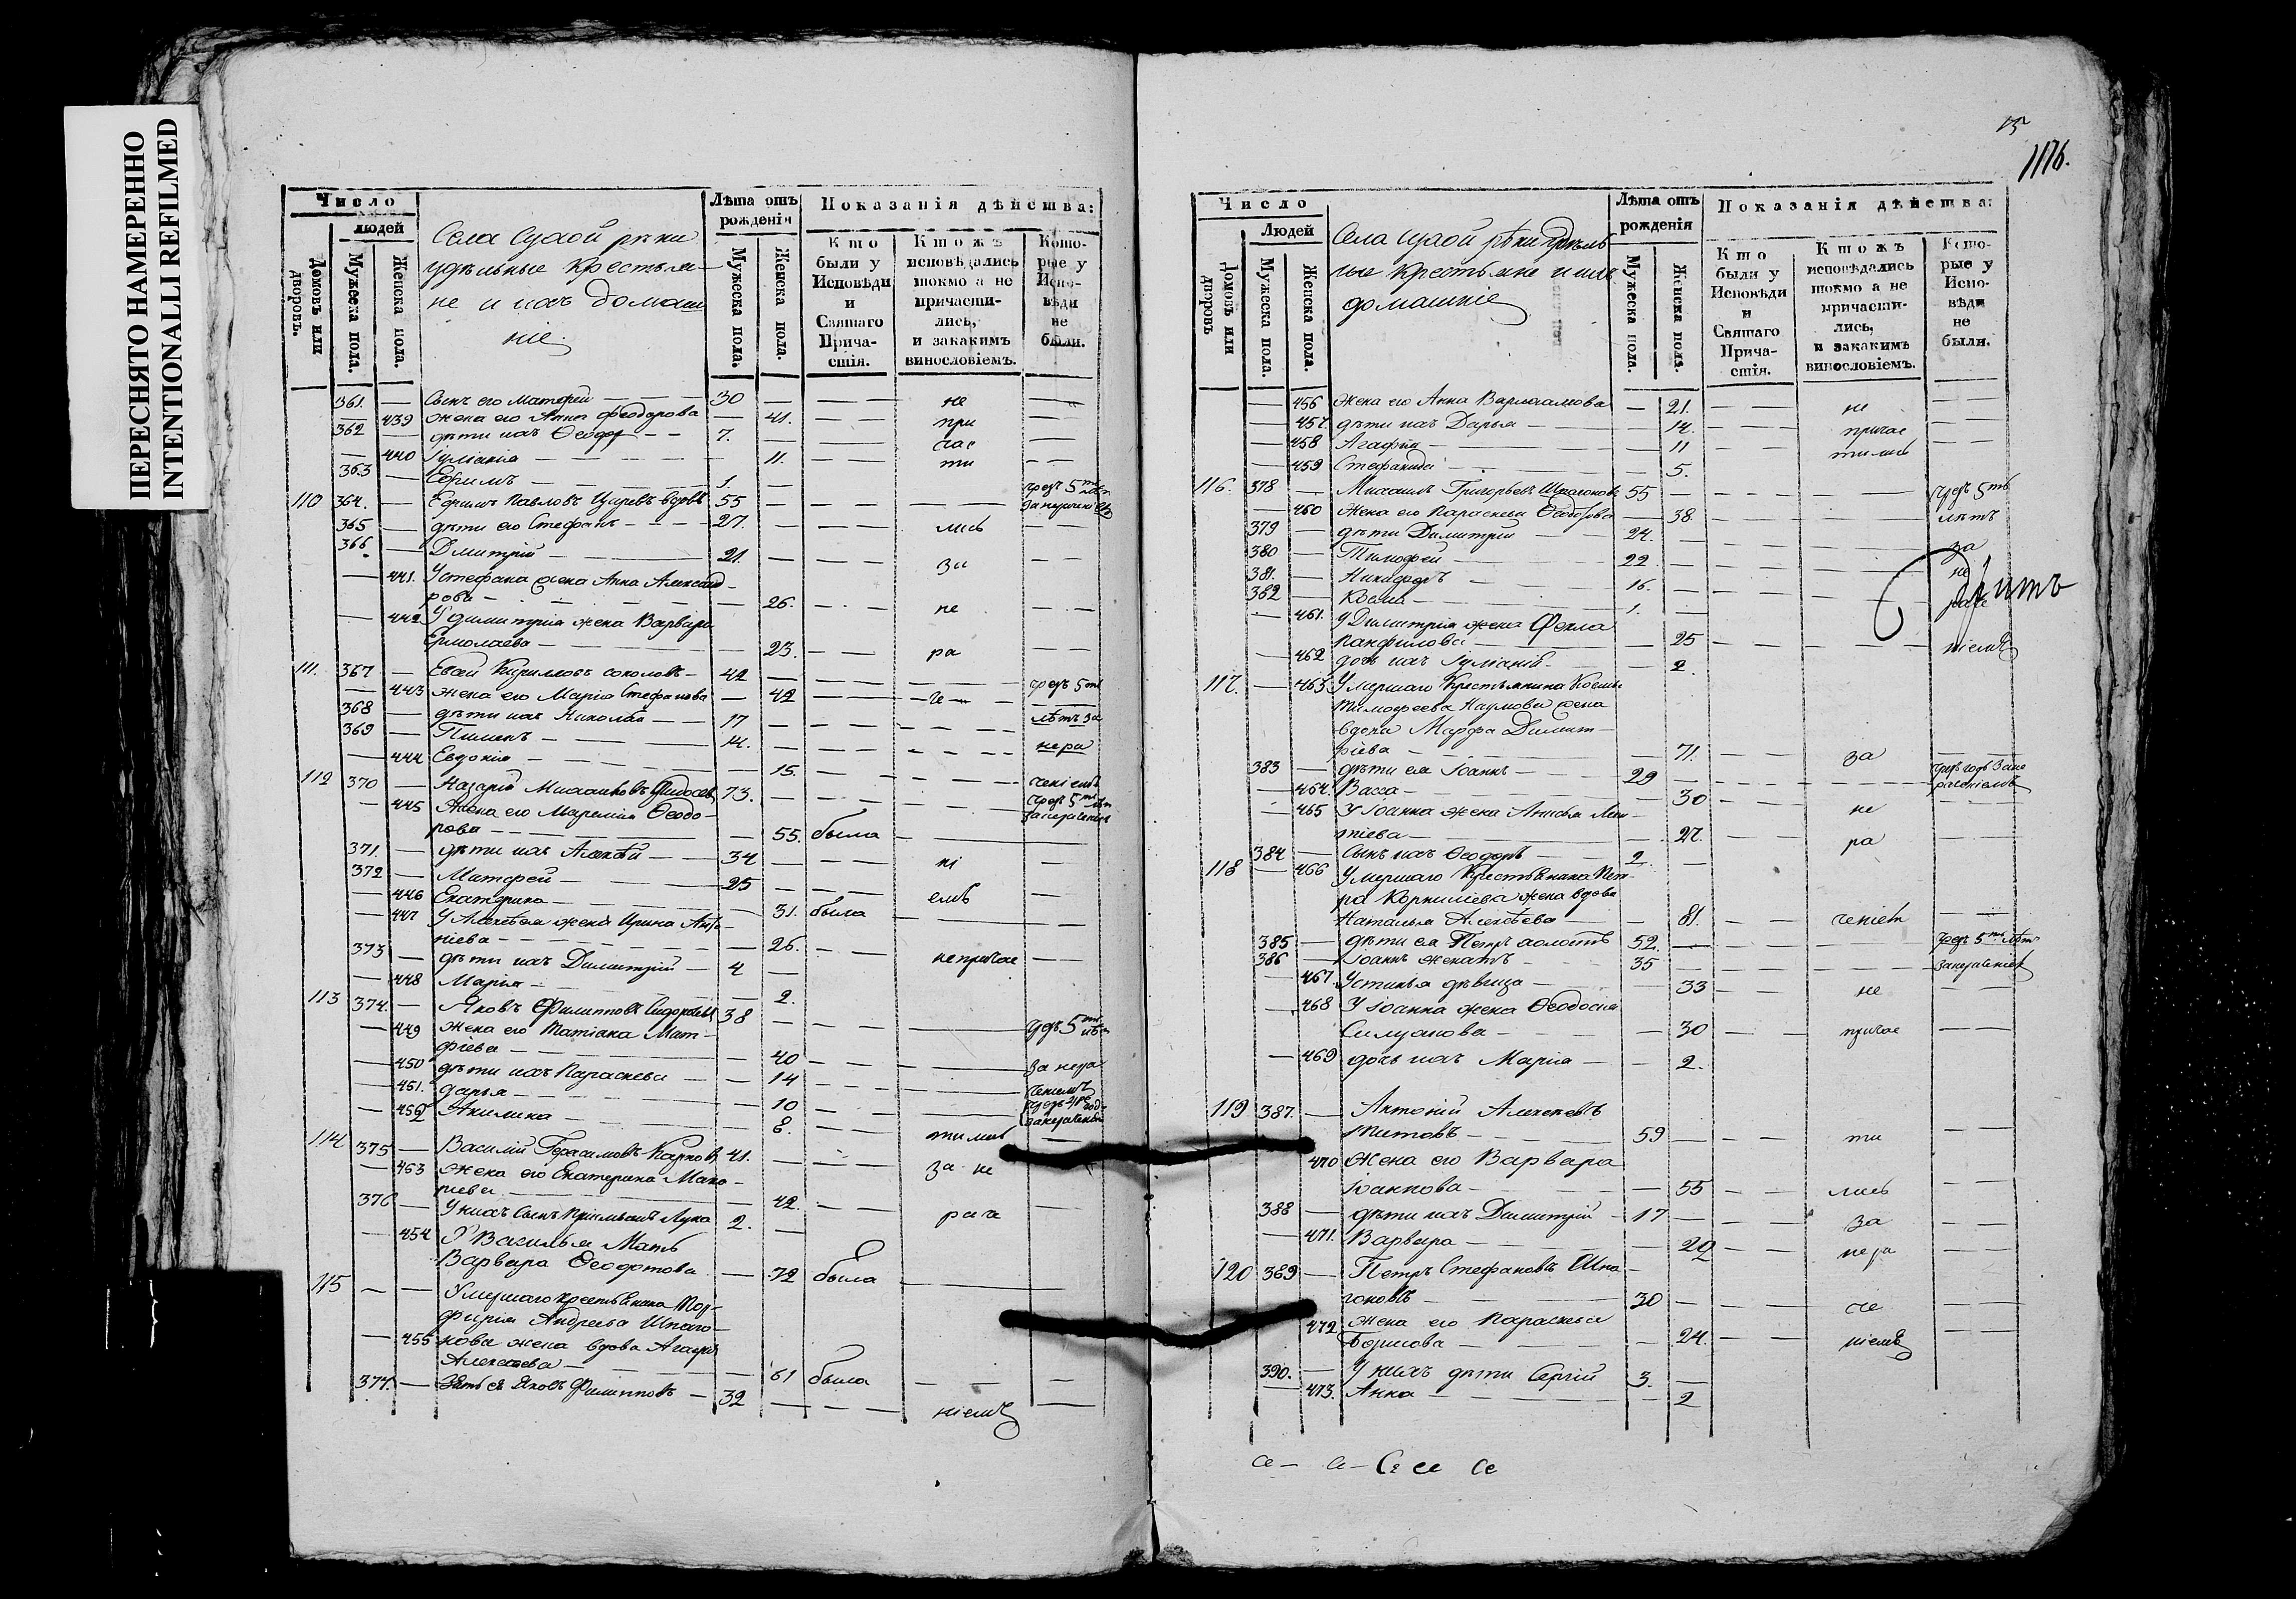 ПЕРЕСНЯТО НАМЕРЕННО
INTENTIONALLI REFILMED
Число
людей
Домовъ или дворовъ.
Мужеска пола.
Женска пола.
Села Сухой рѣки
удѣльные крестья-
не и ихъ домаш
ніе
Лѣта отъ рожденія
Мужеска пола.
Женска пола.
Показанія дѣйства:
Кто были у Исповѣди и Святаго Прича-стія.
Кто жъ исповѣдались токмо а не причасти-лись, и закакимъ винословіемъ.
Кото-рые у Испо-вѣди не были.
361. — Сынъ его Матфей — 30 — не
— 439 жена его Анна Феодорова — 41. — при
362 — дѣти ихъ Ѳеодор — 7. — час
— 440 Іуліанія — 11. — ти
363 — Ефимъ — 1.
110 364. — Ефимъ Павловъ вдовъ 55 — чрез 5ть лѣт
365 — дѣти его Стефанъ — 27. — лись
366 — Дмитрій — 21. — за
— 441. У Стефана жена Анна Александ-
рова — 26. — не
— 442 У Димитрія жена Варвара
Ермолаева — 23. — ра
111. 367 — Евсей Кириловъ соколовъ — 42 — чрезъ 5ть
— 443 жена его Марія Стефанова — 42 — че —
368 — дѣти ихъ Николай — 17 — лѣтъ за
369 — Пименъ — 14. — нера
— 444 Евдокія — 15. — ченіемъ
112 370 — Назарій 73. — чрез 5ть лѣт
— 445 Жена его Ѳеодо-
рова — 55. была
371. — дѣти ихъ Алексѣй — 34 — ні
372 — Матфей — 25 — емъ
— 446 Екатерина — 31. была
— 447 У Алексѣя жена Ирина
ніева — 26. — непричас
373 — дѣти ихъ Димитрій — 4
— 448 Марія — 2.
113 374. — Яковъ Филиповъ 38 — чрез 5ть лѣт
— 449 жена его Татіана Мат-
фіева — 40 — за нера
— 450 дѣти ихъ Параскева — 14 — ченіемъ
— 451. Дарья — 10
— 452 Акилина — 8. — тились
114 375 — Василій Герасимовъ Карпов 41. — за не
— 453 жена его Екатерина Мака-
ріева — 42. — рач
376 — У нихъ Сынъ Лука 2.
— 454 У Василья Мать
Варвара Ѳеодотова — 72 была
115 — — Умершаго крестьянина Пор-
фирія Андреева Шпаго-
— 455 нова жена вдова Агафія
Алексеева — 61 была
377. — Зять ея Яковъ Филипповъ — 32 — ніемъ
15
1176.
Число
Людей
Домовъ или дворовъ
Мужеска пола.
Женска пола.
Села сухой рѣки удѣль
ные крестьяне и ихъ
домашніе
Лѣта отъ рожденія
Мужеска пола.
Женска пола.
Показанія дѣйства:
Кто были у Исповѣди и Святаго Прича-стія.
Кто жъ исповѣдались токмо а не причасти-лись, и закакимъ винословіемъ.
Кото-рые у Испо-вѣди не были.
— 456 жена его Анна Варлаамова — 21. — не
— 457. дѣти ихъ Дарья — 14. — причас
— 458 Агафія — 11 — тились
— 459 Стефанида — 5.
116. 378 — Михаилъ Григорьевъ Шпагоновъ 55 — чрез 5ть
— 460 жена его Параскева Ѳеодорова — 38. — лѣтъ
379 — дѣти Димитрій — 24. — за
380 — Тимофей — 22 — не
381. — Никифоръ — 16.
382 — Косма — 1.
— 461. У Димитрія жена Фекла
Панфилова — 25 — ніемъ
— 462 дочь ихъ Іуліанія — 2.
117. — 463 Умершаго Крестьянина Космы
Тимофеева Наумова жена
вдова Марфа Димит-
ріева — 71. — за
383 — дѣти ея Іоаннъ — 29
— 464. Васса — 30 — не
— 465 У Іоанна жена
тіева — 27. — ра
384 — Сынъ ихъ Ѳеодоръ — 2
118 — 466 Умершаго Крестьянина Пет-
ра Корнилiева жена вдова
Наталья Алексѣева — 81. — ченіем
385 — дѣти ея Петръ холостъ 52. — чрезъ 5ть лѣтъ
386 — Іоаннъ женатъ — 35
— 467. Устинья дѣвица — 33 — не
— 468 У Іоанна жена Ѳеодосія
Силуанова — 30 — причас
— 469 дочь ихъ Марія — 2.
119 387. — Антоній Алексеевъ
Титовъ — 59 — ти
470 жена его Варвара
Іоаннова — 55 — лись
388 — дѣти ихъ Димитрій — 17 — за
— 471. Варвара — 20 — нера
120 389 — Петръ Стефановъ Шпа-
гоновъ — 30 — че
472 жена его Параскева
Борисова — 24. — ніемъ
390. — У нихъ дѣти Сергій 3.
— 473. Анна — 2